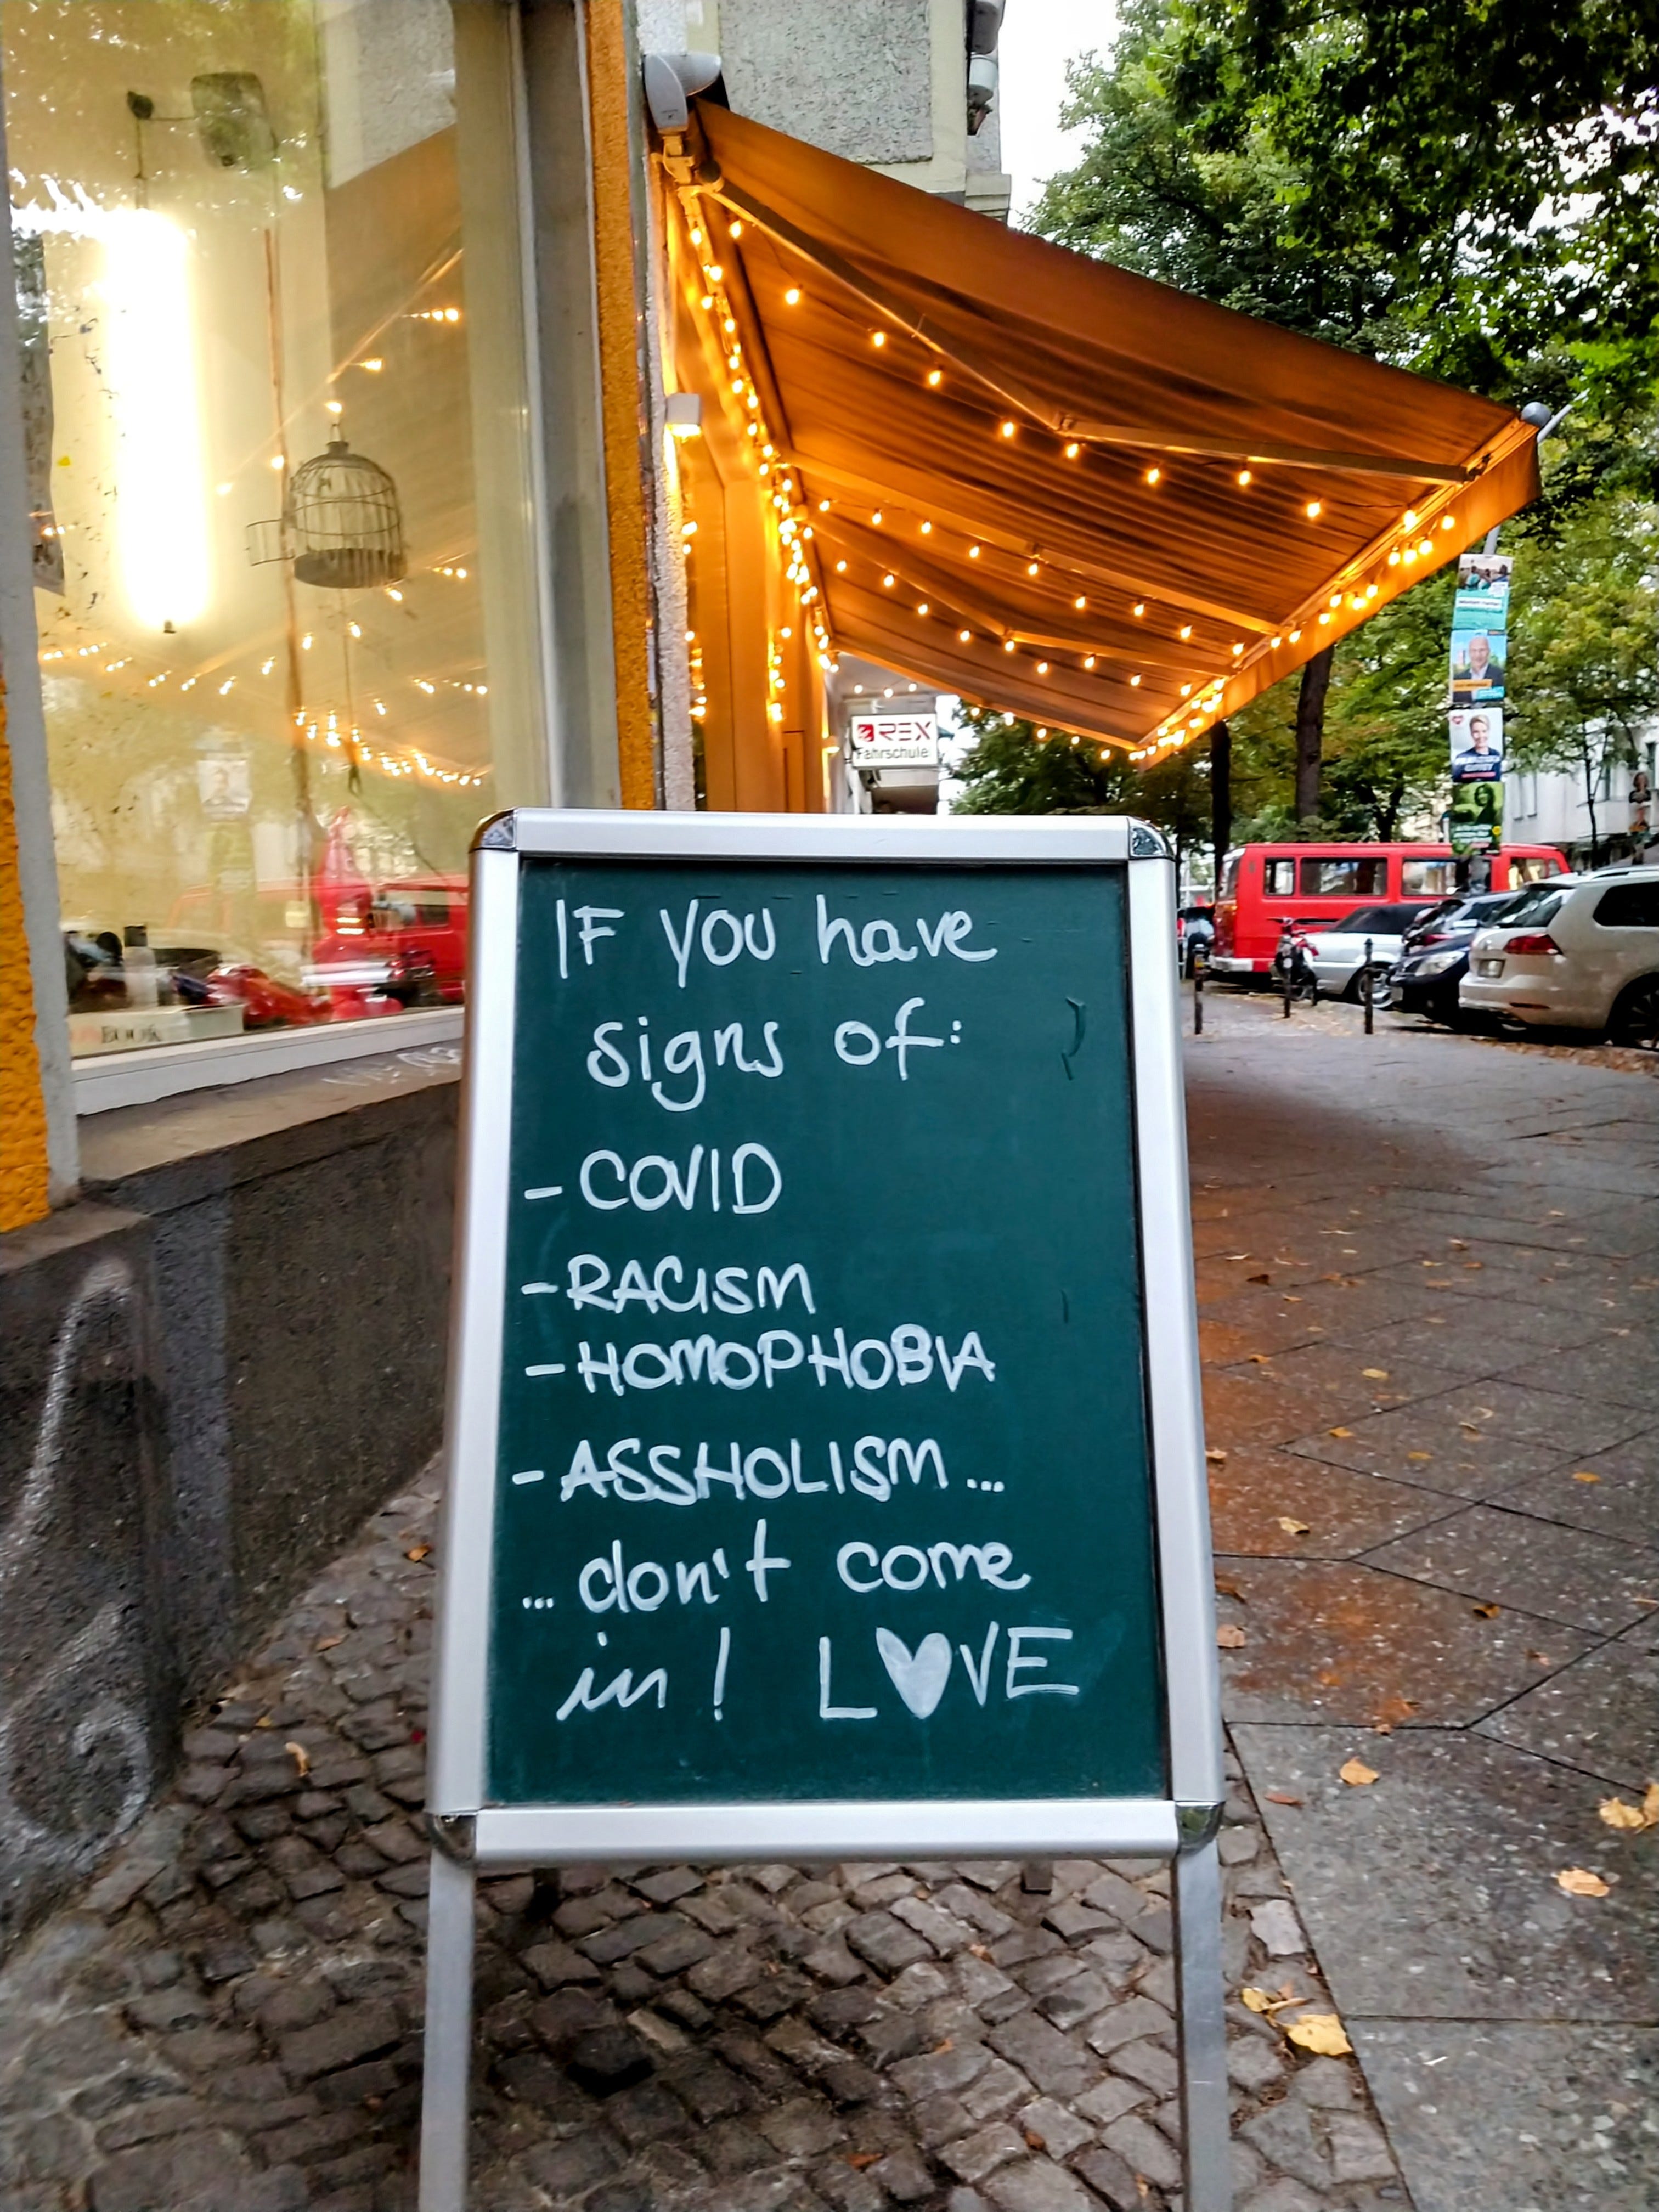 REX
Fahrschule
BOOK
IF YOU have
signs of:
- COVID
- RACISM
- HOMOPHOBIA
- ASSHOLISM ...
... don't come
in! L♥VE